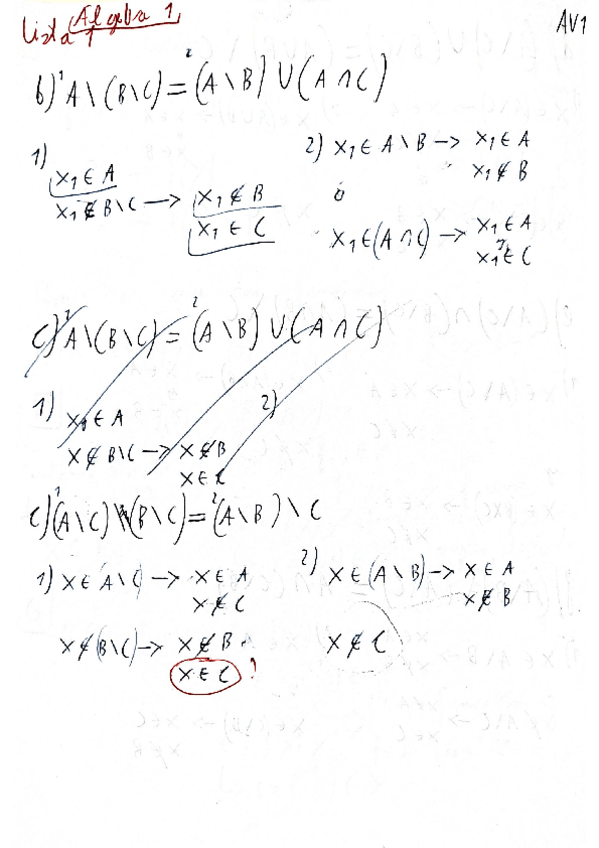 Lista 1 Algebra 1
AV1
b) ¹A\(B\C) = ²(A\B) ∪ (A ∩ C)
1) x₁ ∈ A
x₁ ∉ B\C → x₁ ∉ B
x₁ ∈ C
2) x₁ ∈ A\B → x₁ ∈ A
x₁ ∉ B
ó
x₁ ∈ (A ∩ C) → x₁ ∈ A
x₁ ∈ C
c) ¹A\(B\C) = ²(A\B) ∪ (A ∩ C)
1) x₁ ∈ A
x ∉ B\C → x ∉ B
x ∈ C
2)
c) ¹(A\C)\(B\C) = ²(A\B)\C
1) x ∈ A\C → x ∈ A
x ∉ C
x ∉ (B\C) → x ∉ B
x ∈ C ?
2) x ∈ (A\B) → x ∈ A
x ∉ B
x ∉ C